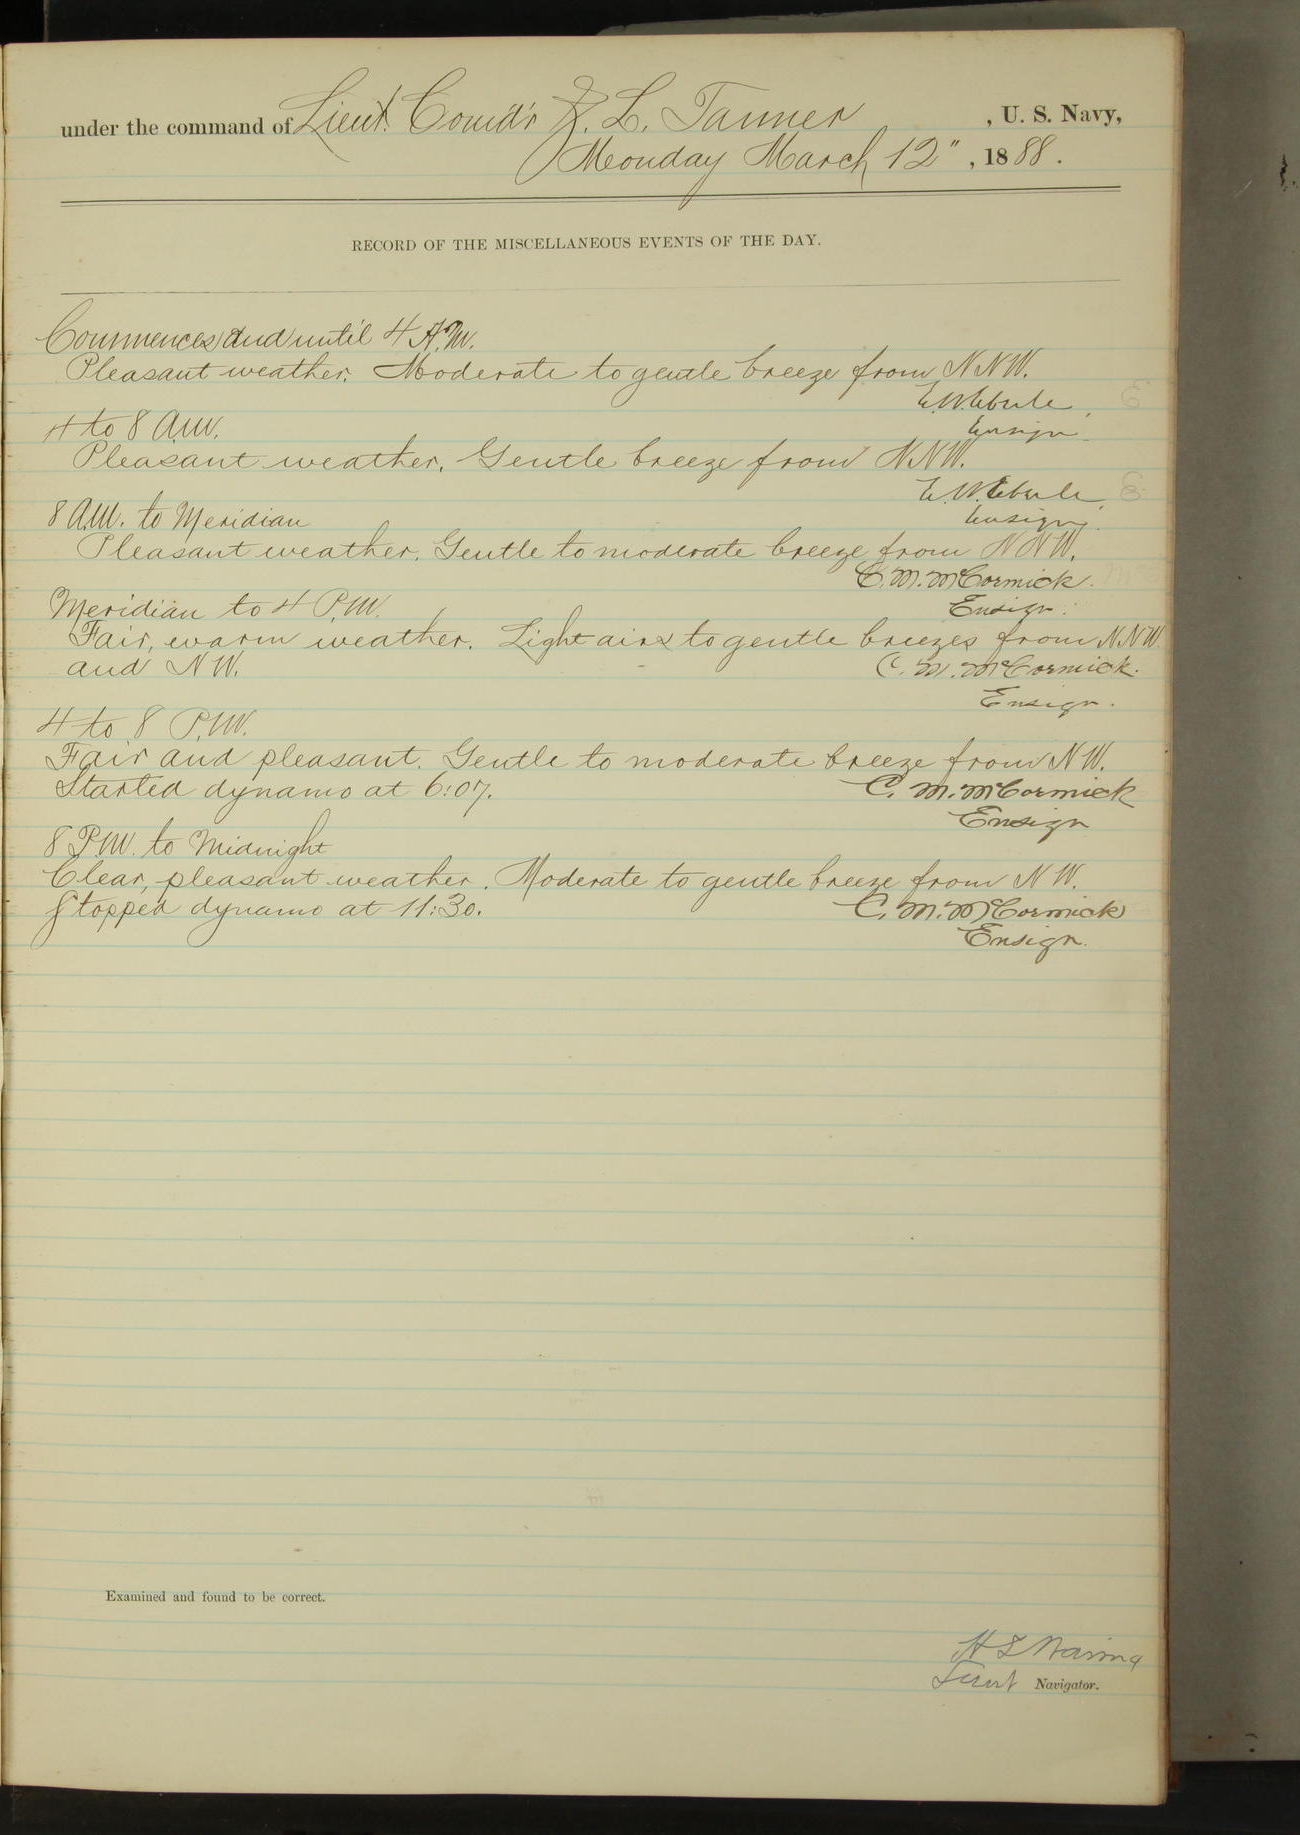 under the command of Lieut. Comd'r Z. L. Tanner, U. S. Navy,
Monday March 12", 1888.
RECORD OF THE MISCELLANEOUS EVENTS OF THE DAY.
Commences and until 4 A.M.
Pleasant weather. Moderate to gentle breeze from NNW.
E. W. Eberle,
Ensign.
4 to 8 A.M.
Pleasant weather. Gentle breeze from NNW.
E. W. Eberle,
Ensign.
8 A.M. to Meridian
Pleasant weather. Gentle to moderate breeze from NNW.
C. M. McCormick.
Ensign.
Meridian to 4 P.M.
Fair, warm weather. Light airs to gentle breezes from NNW
and NW.
C. M. McCormick.
Ensign.
4 to 8 P.M.
Fair and pleasant. Gentle to moderate breeze from NW.
Started dynamo at 6:07.
C. M. McCormick
Ensign
8 P.M. to Midnight
Clear, pleasant weather. Moderate to gentle breeze from NW.
Stopped dynamo at 11:30.
C. M. McCormick
Ensign.
Examined and found to be correct.
H S Waring
Lieut Navigator.